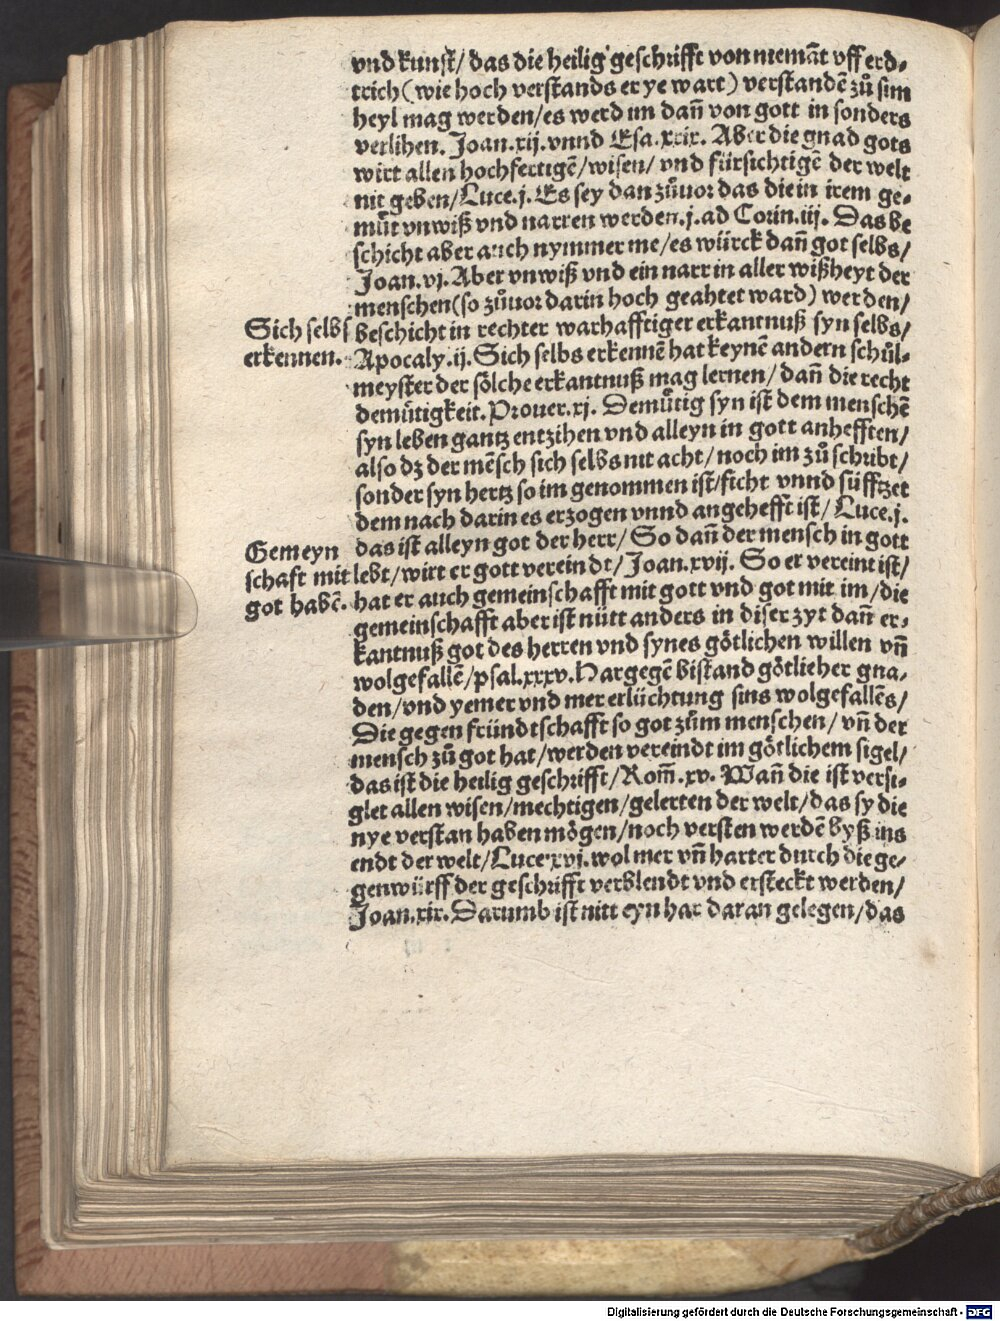 vnd kunst/ das die heilig geschrifft von niemāt vff erd⸗
trich (wie hoch verstands er ye wart) verstandē zů sim
heyl mag werden/ es werd im dañ von gott in sonders
verlihen. Joan.xij. vnnd Esa.xxix. Aber die gnad gots
wirt allen hochfertigē/ wisen/ vnd fürsichtigē der welt
nit geben/ Luce.j. Es sey dan zůuor das die in irem ge⸗
můt vnwiß vnd narren werden.j.ad Corin.iij. Das be
schicht aber auch nymmer me/ es würck dañ got selbs/
Joan.vj. Aber vnwiß vnd ein narr in aller wißheyt der
menschen (so zůuor darin hoch geahtet ward) werden/
Sich selbs
erkennen.
beschicht in rechter warhafftiger erkantnuß syn selbs/
Apocaly.ij. Sich selbs erkennē hat keynē andern schůl⸗
meyster der sölche erkantnuß mag lernen/ dañ die recht
demůtigkeit. Prouer.xj. Demůtig syn ist dem menschē
syn leben gantz entzihen vnd alleyn in gott anhefften/
also dz der mēsch sich selbs nit acht/ noch im zů schribt/
sonder syn hertz so im genommen ist/ ficht vnnd süfftzet
dem nach darin es erzogen vnnd angehefft ist/ Luce.j.
Gemeyn
schaft mit
got habē.
das ist alleyn got der herr/ So dañ der mensch in gott
lebt/ wirt er gott vereindt/ Joan.xvij. So er vereint ist/
hat er auch gemeinschafft mit gott vnd got mit im/ die
gemeinschafft aber ist nütt anders in diser zyt dañ er⸗
kantnuß got des herren vnd synes götlichen willen vñ
wolgefallē/ psal.xxxv. Hargegē bistand götlieher gna⸗
den/ vnd yemer vnd mer erlüchtung sins wolgefallēs/
Die gegen fründtschafft so got zům menschen/ vñ der
mensch zů got hat/ werden vereindt im götlichem sigel/
das ist die heilig geschrifft/ Rom̄.xv. Wañ die ist versi⸗
glet allen wisen/ mechtigen/ gelerten der welt/ das sy die
nye verstan haben mögen/ noch versten werdē byß ins
endt der welt/ Luce.xvj. wol mer vñ harter durch die ge⸗
genwürff der geschrifft verblendt vnd ersteckt werden/
Joan.xix. Darumb ist nitt eyn har daran gelegen/ das
Digitalisierung gefördert durch die Deutsche Forschungsgemeinschaft - DFG